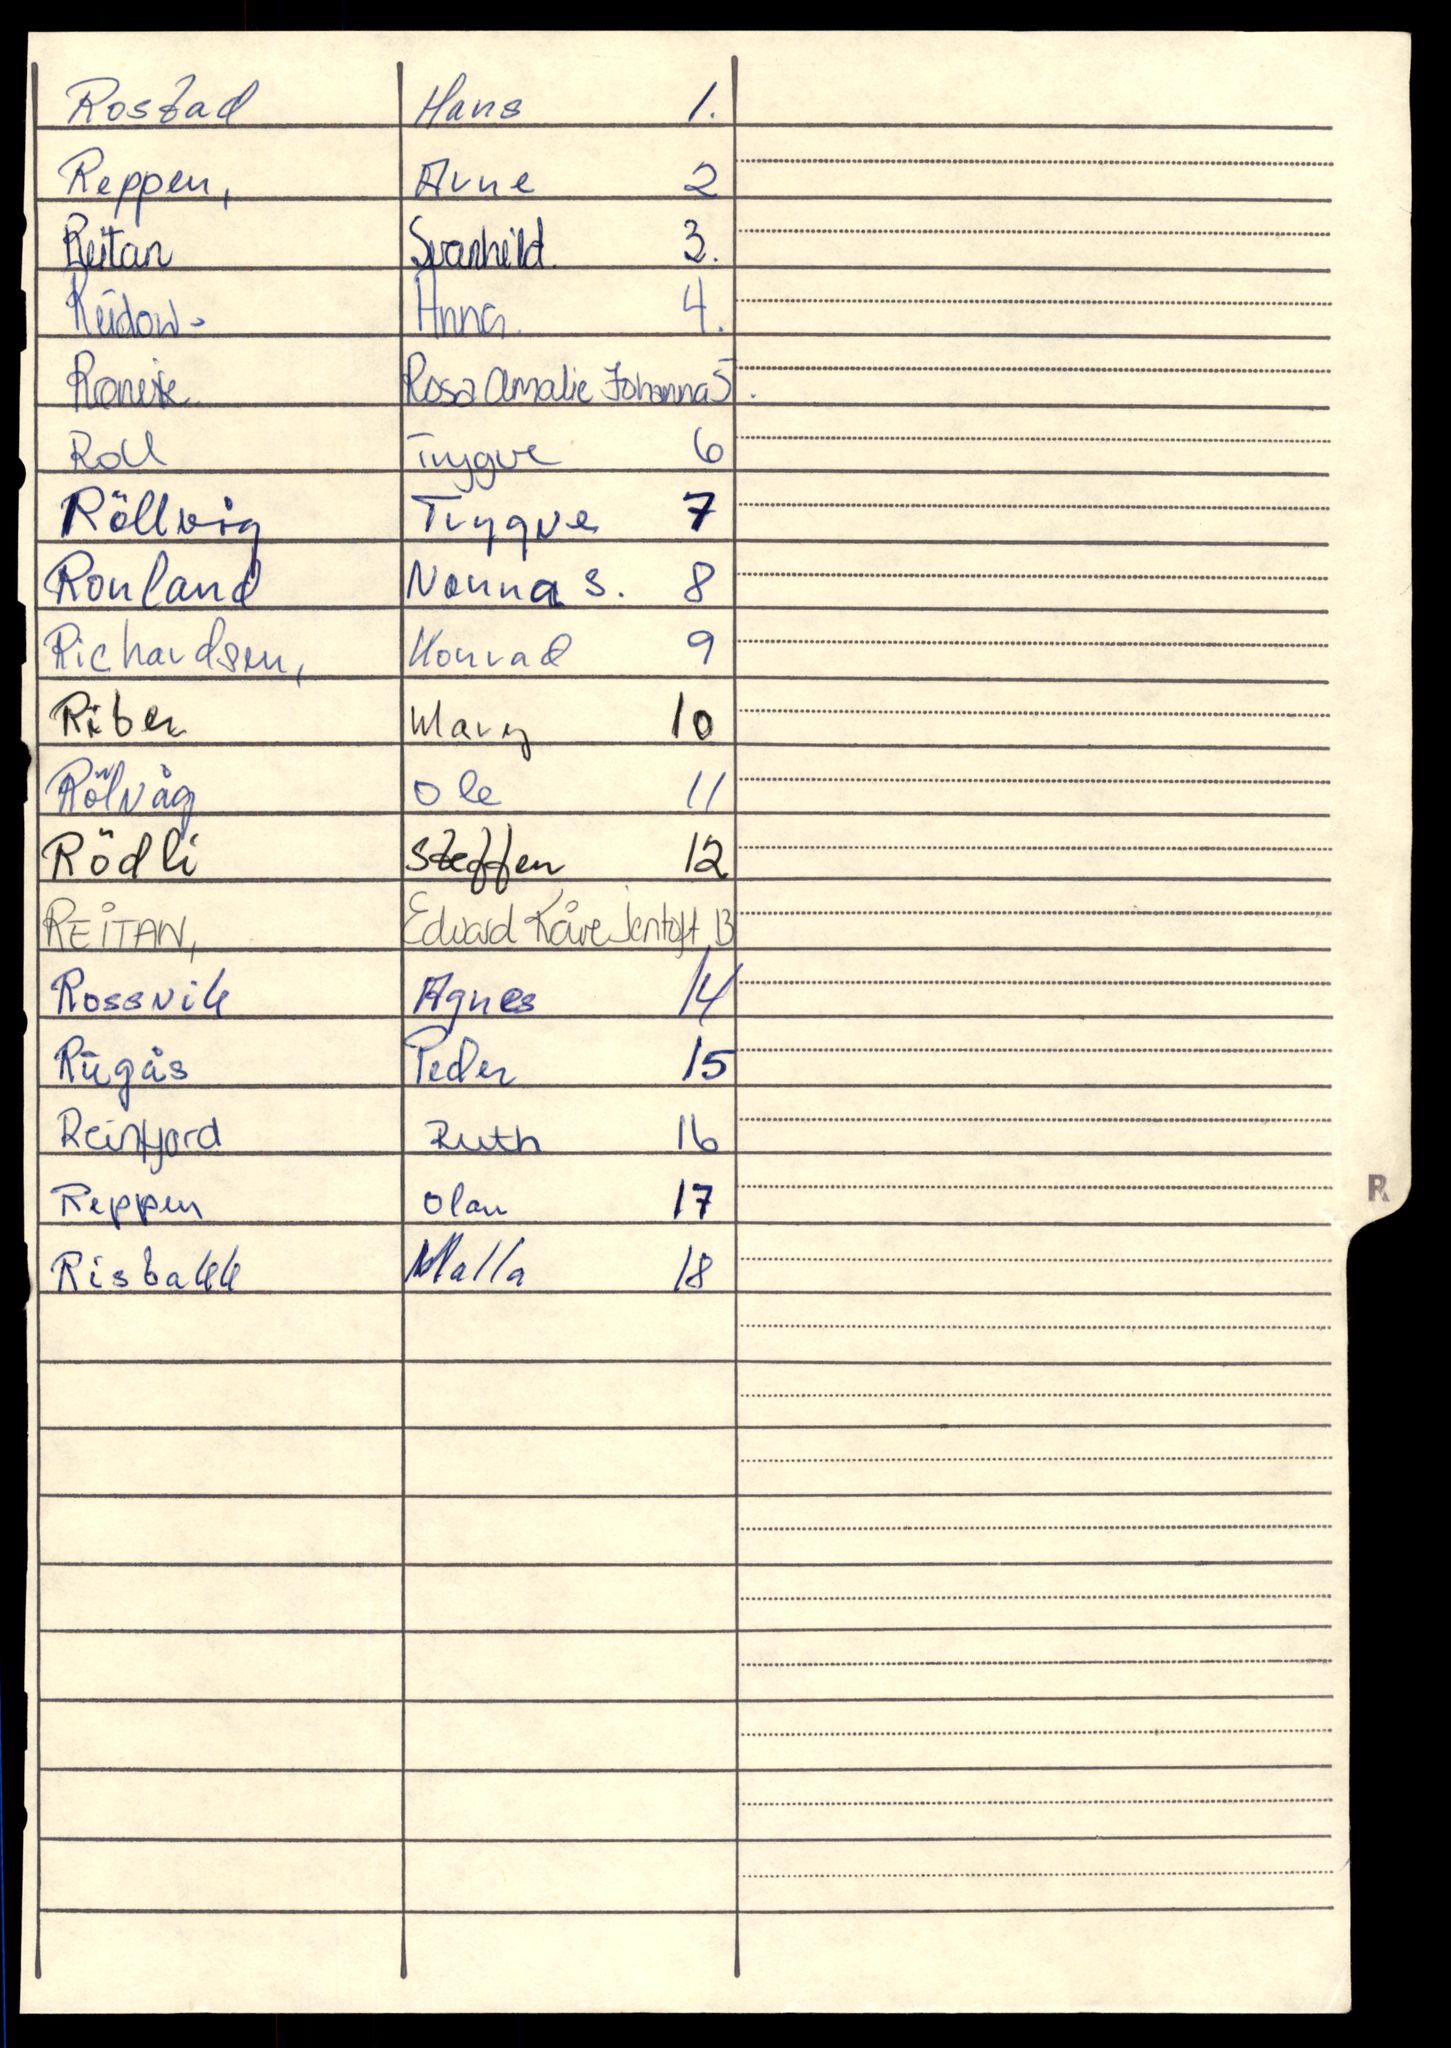 Rostad Hans 1.
Reppen, Arne 2
Reitan Svanhild. 3.
Anna. 4.
Rosa Amalie Johanna 5.
Roll Trygve 6
Röllvig Trygve 7
Ronland Nonna S. 8
Richardsen, Konrad 9
Riber Mary 10
Rölvåg Ole 11
Rödli Steffen 12
REITAN, Edvard Kåre Jentoft 13
Rossvik Agnes 14
Rugås Peder 15
Reinfjord Ruth 16
Reppen Olav 17
R
Risbakk Malla 18